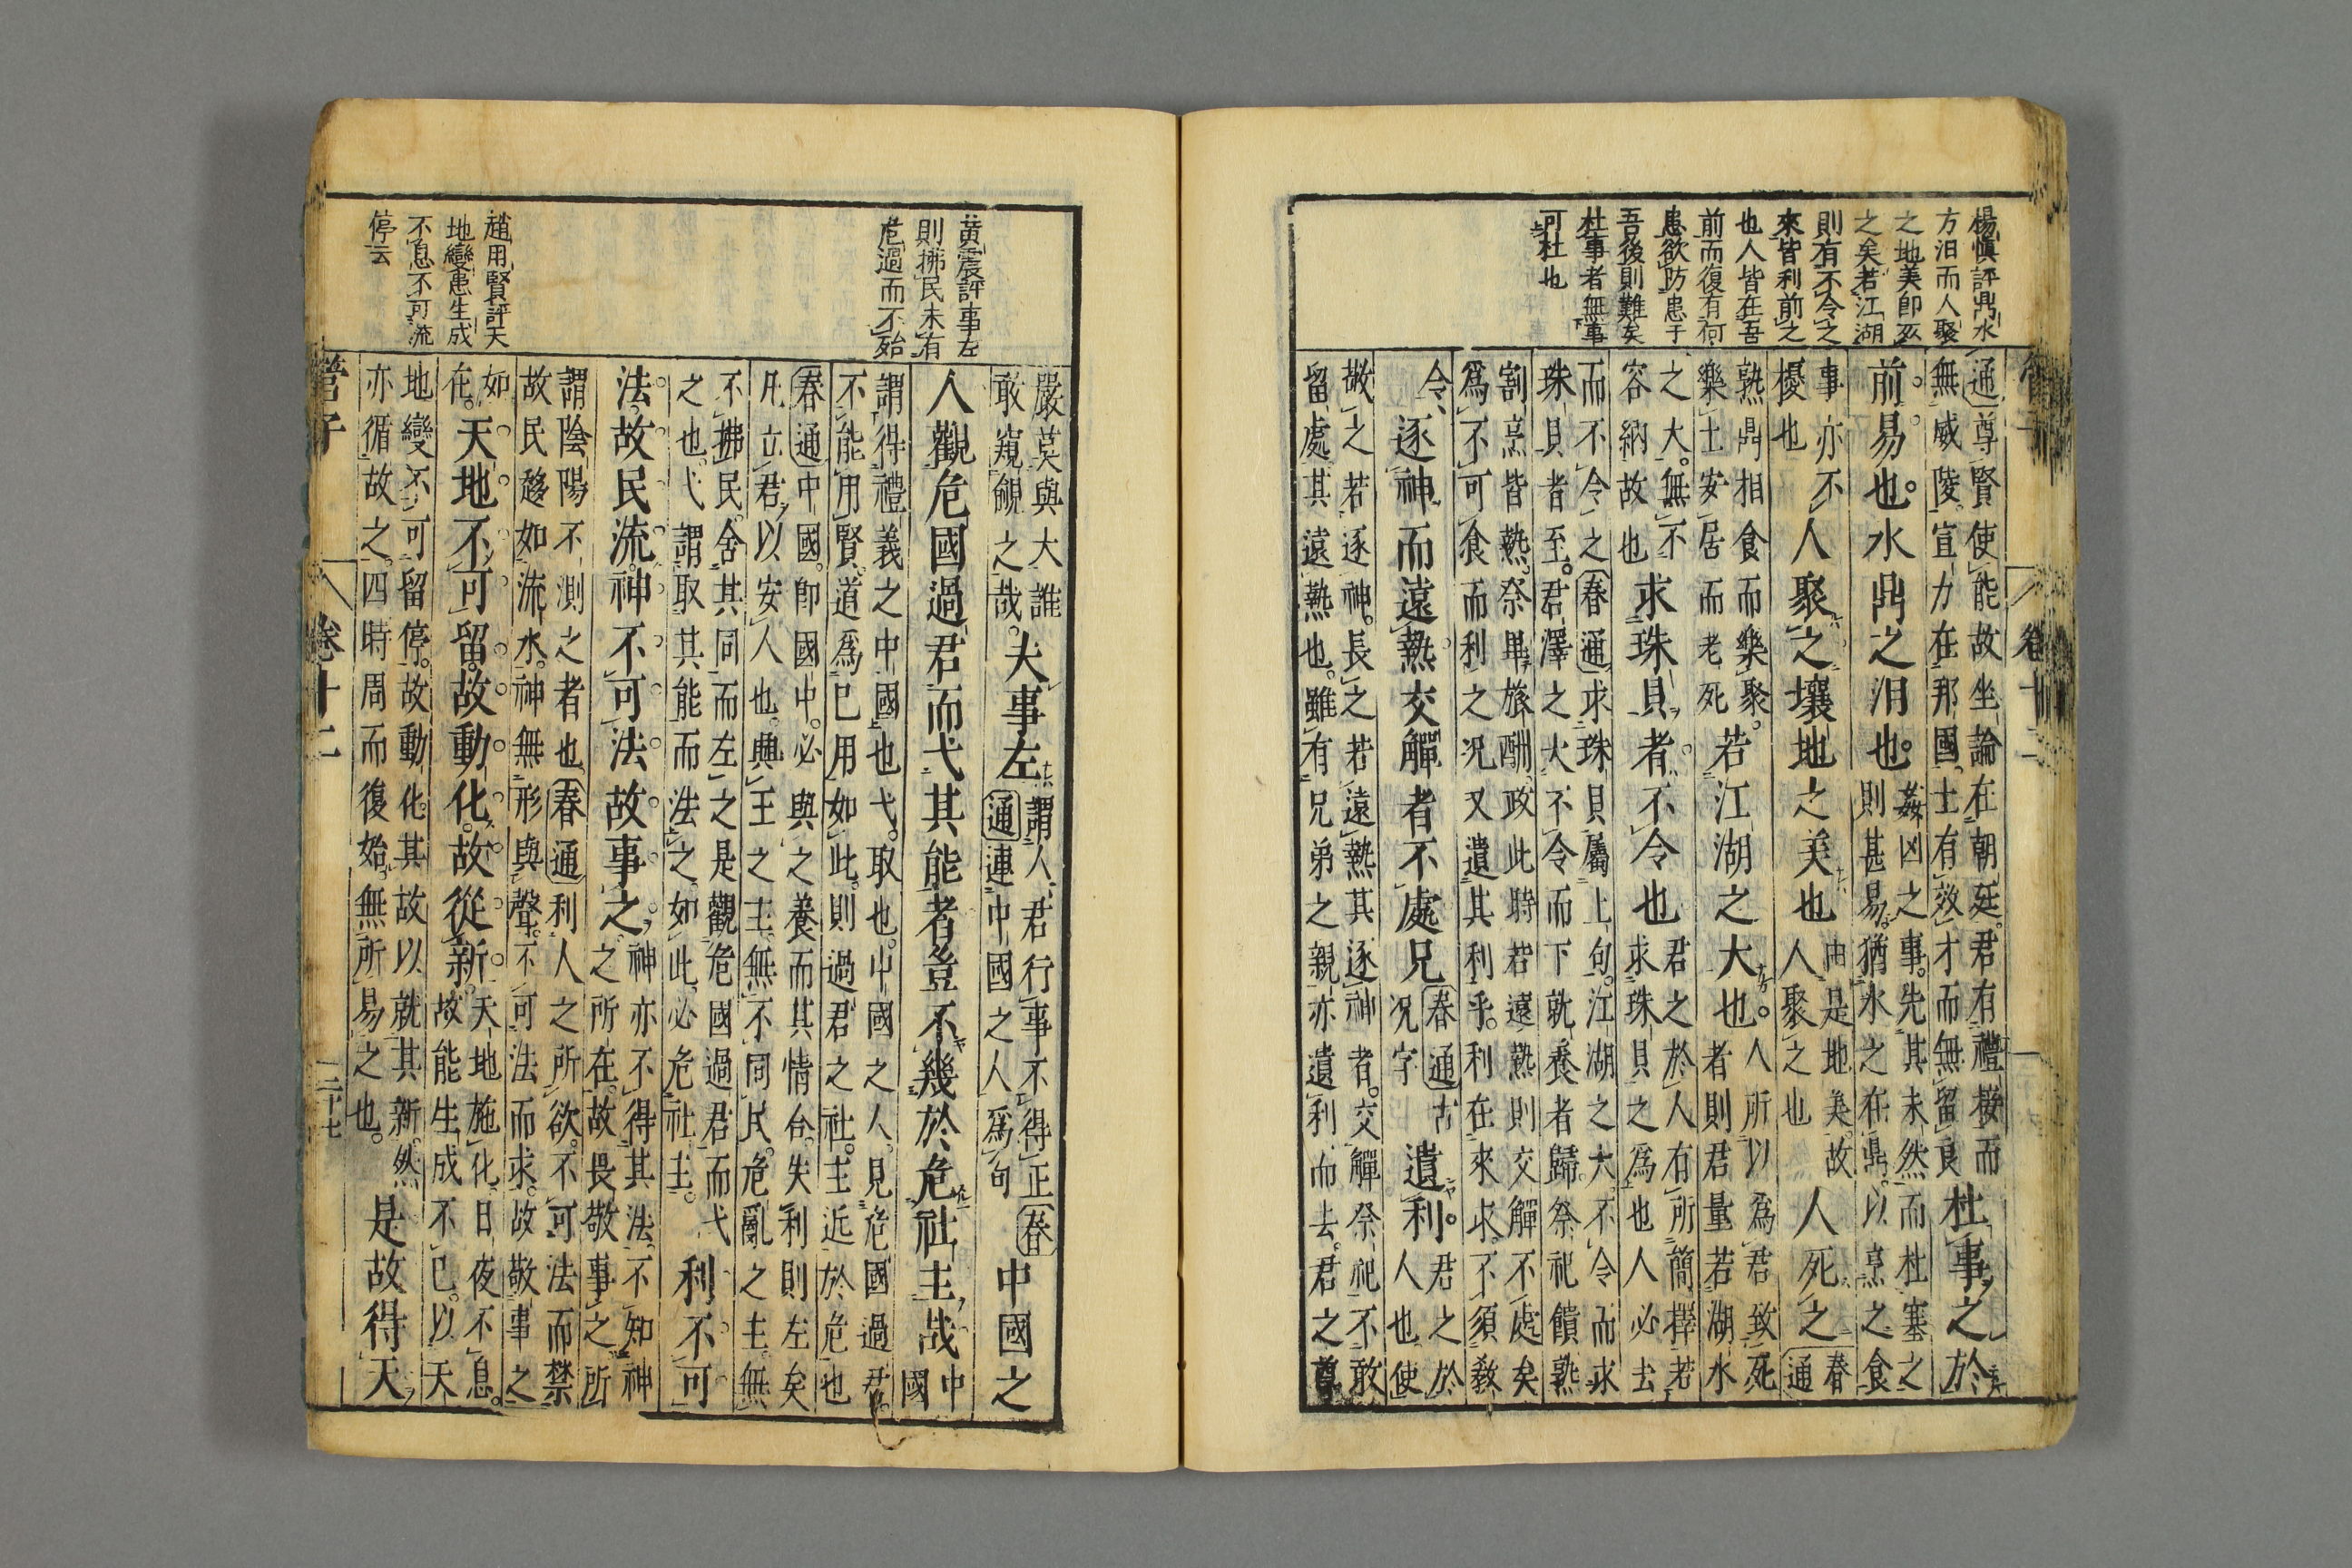 楊愼評鼎水
方汨而人聚
之地美卽死
之矣若江湖
則有不令之
來皆利前之
也人皆在吾
前而復有何
患欲防患于
吾後則難矣
杜事者無事
可杜也
卷十二
通尊賢使能故坐論在朝廷君有禮接而
無威陵宣力在那國士有效才而無留良
杜事之於
前易也水鼎之汨也
姦凶之事先其未然而杜塞之
則甚易猶水之在鼎以烹之食
事亦不
擾也
人聚之壤地之美也
由是地美故
人聚之也
人死之
春
通
熟鼎相食而樂聚
樂土安居而老死
若江湖之大也
人所以爲君致死
者則君量若湖水
之大無不
容納故也
求珠貝者不令也
君之於人有所簡擇若
求珠貝之爲也人必去
而不令之春通求珠貝屬上句江湖之大不令而求
珠貝者至君澤之大不令而下就養者歸祭祀饋熟
割烹皆熱祭畢旅酬政此時若遠熱則交觶不處矣
爲不可食而利之况又遺其利乎利在來求不須敎
令
逐神而遠熱交觶者不處兄
春通古
况字
遺利
君之於
人也使
敬之若逐神長之若遠熱其逐神者交觶祭祀不敢
留處其遠熱也雖有兄弟之親亦遺利而去君之尊
黃震評事左
則拂民未有
危過而不殆
趙用賢評天
地變患生成
不息不可流
停云
嚴莫與大誰
敢窺覦之哉
夫事左
謂人君行事不得正春
通連中國之人爲句
中國之
人觀危國過君而弋其能者豈不幾於危社主哉
中
國
謂得禮義之中國也弋取也中國之人見危國過君
不能用賢道爲已用如此則過君之社主近於危也
春通中國卽國中必與之養而其情合失利則左矣
凡立君以安人也典王之主無不同民危亂之主無
不拂民舍其同而左之是觀危國過君而弋
之也弋謂取其能而法之如此必危社主
利不可
法故民流神不可法故事之
神亦不得其法不知神
之所在故畏敬事之所
謂陰陽不測之者也春通利人之所欲不可法而禁
故民趍如流水神無形與聲不可法而求故敬事之
如
在
天地不可留故動化故從新
天地施化日夜不息
故能生成不已以天
地變不可留停故動化其故以就其新然
亦循故之四時周而復始無所易之也
是故得天
管子
卷十二
二十七